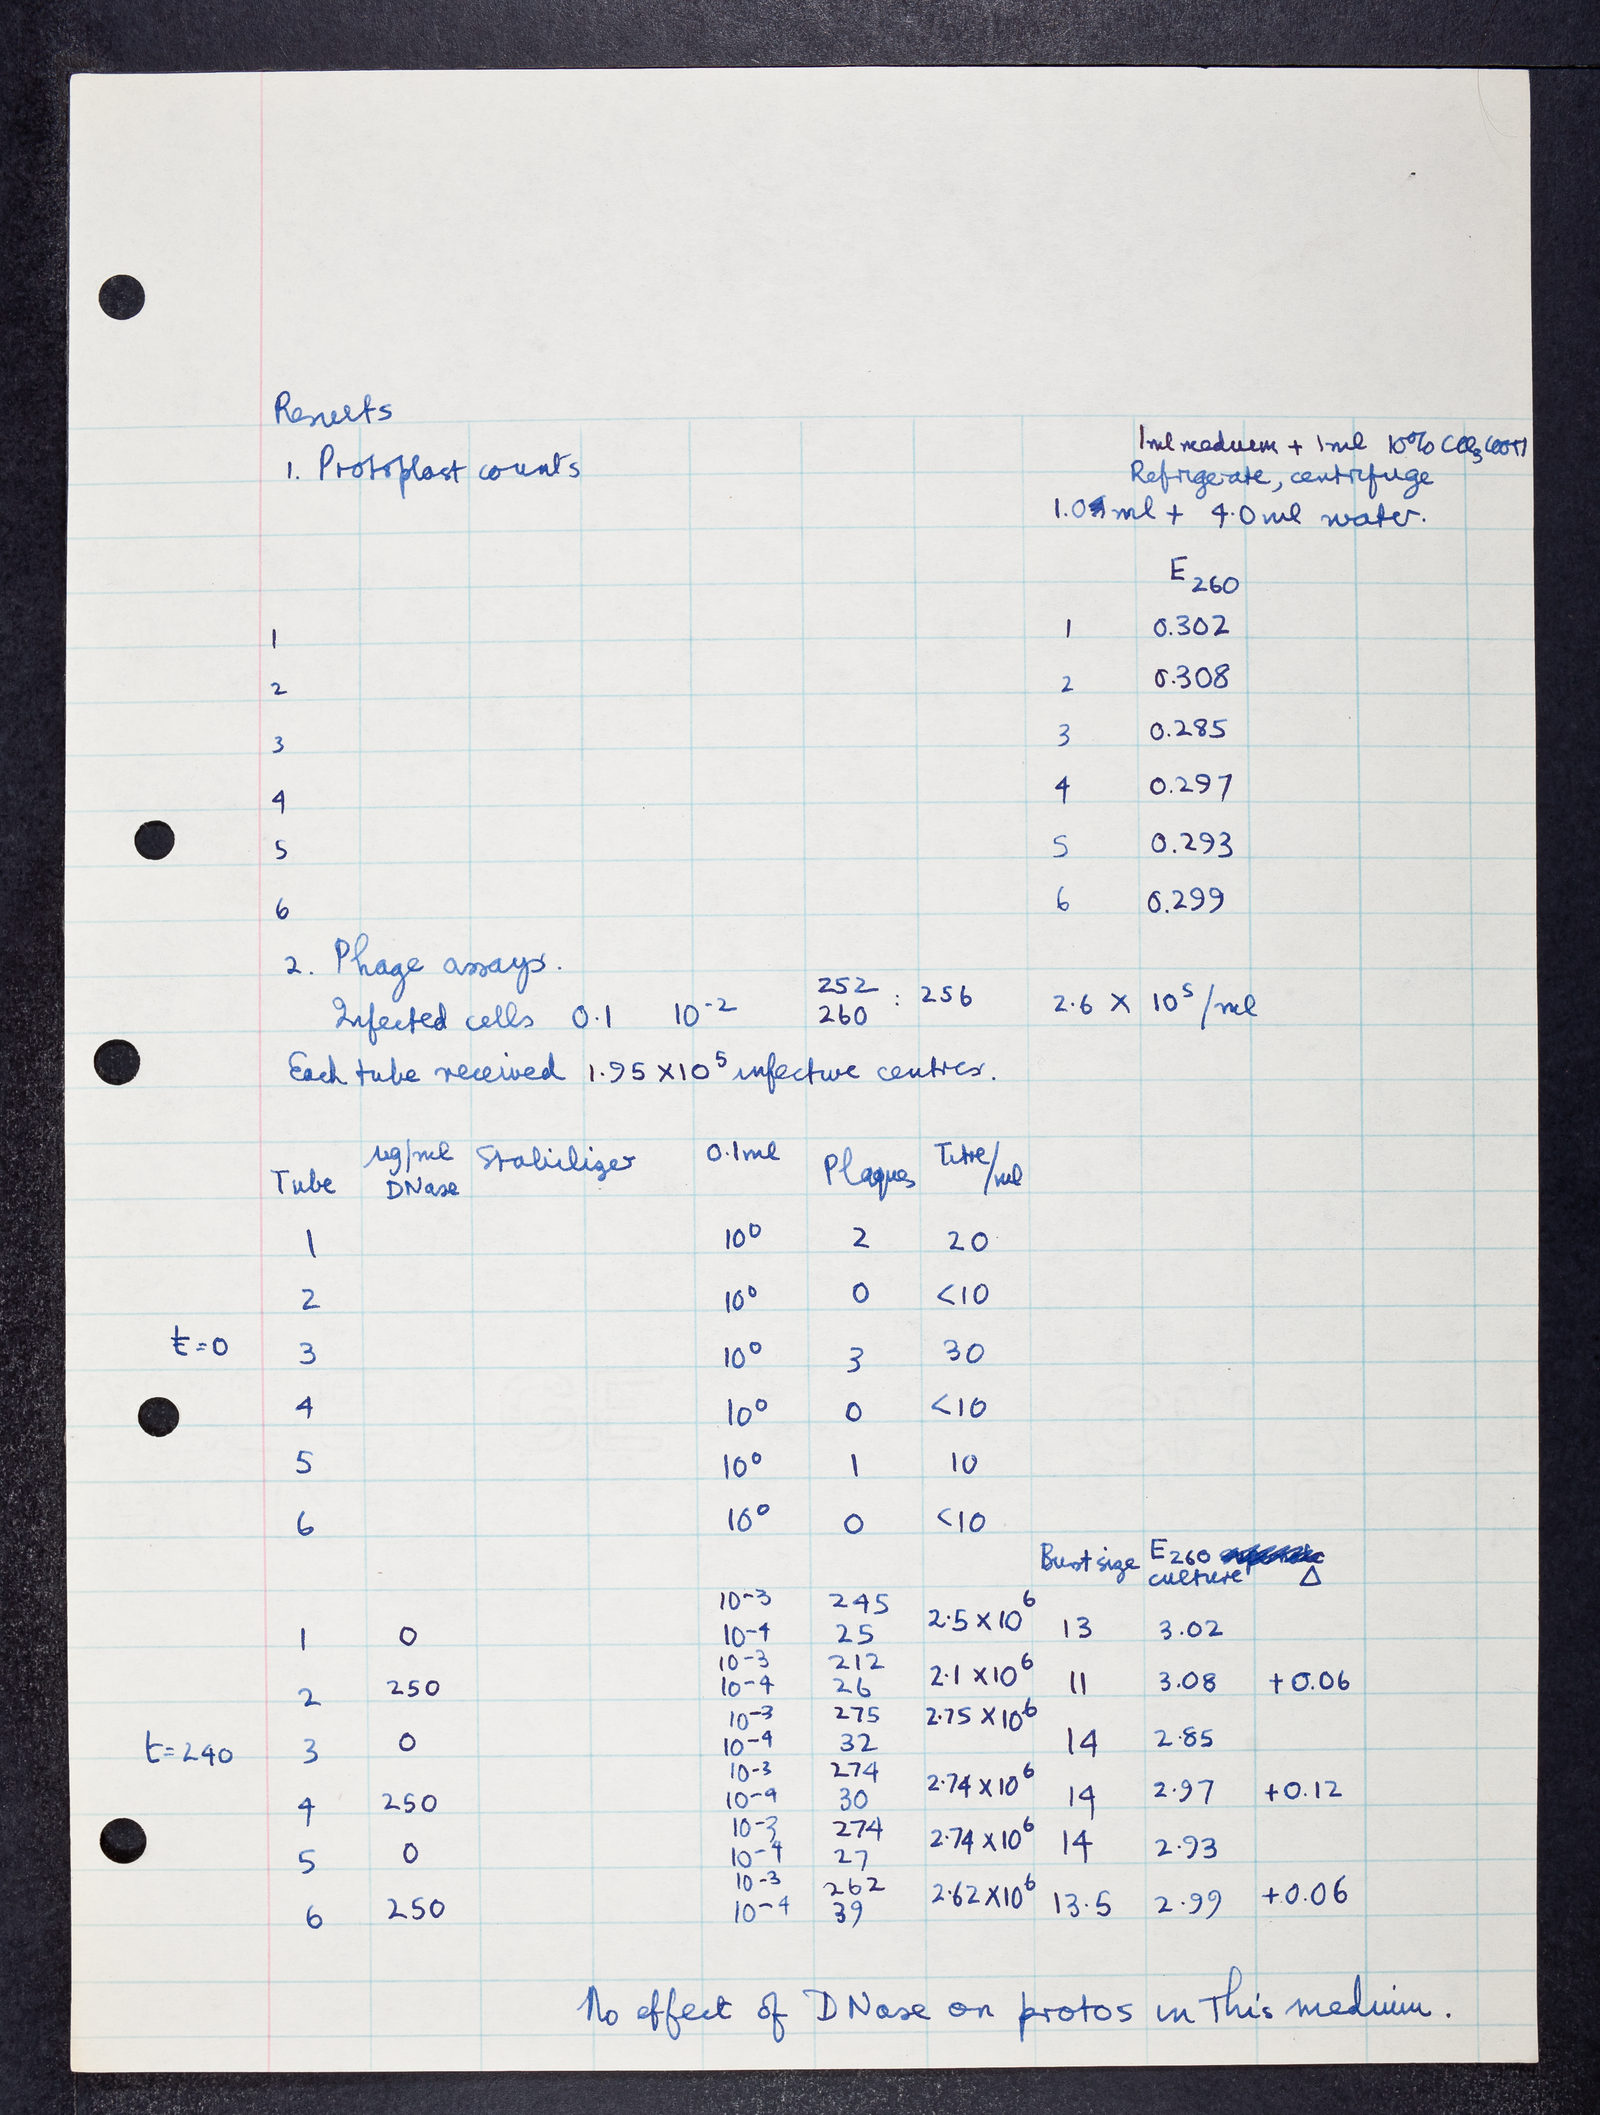 Results
1. Protoplast counts
1 ml medium + 1 ml 10% CCl3COOH
Refrigerate, centrifuge
1.0 ml + 4.0 ml water.
E260
1 1 0.302
2 2 0.308
3 3 0.285
4 4 0.297
5 5 0.293
6 6 0.299
2. Phage assays.
Infected cells 0.1 10-2 252 260 : 256 2.6 X 10^5/ml
Each tube received 1.95 X10^5 infective centres.
Tube µg/ml DNase Stabilizer 0.1ml Plaques Titre/ml
t=0
1 10^0 2 20
2 10^0 0 <10
3 10^0 3 30
4 10^0 0 <10
5 10^0 1 10
6 10^0 0 <10
Burst size E260 culture Δ
t=240
1 0 10-3 245 2.5 X10^6 13 3.02
10-4 25
2 250 10-3 212 2.1 X10^6 11 3.08 +0.06
10-4 26
3 0 10-3 275 2.75 X10^6 14 2.85
10-4 32
4 250 10-3 274 2.74 X10^6 14 2.97 +0.12
10-4 30
5 0 10-3 274 2.74 X10^6 14 2.93
10-4 27
6 250 10-3 262 2.62 X10^6 13.5 2.99 +0.06
10-4 39
No effect of DNase on protos in this medium.